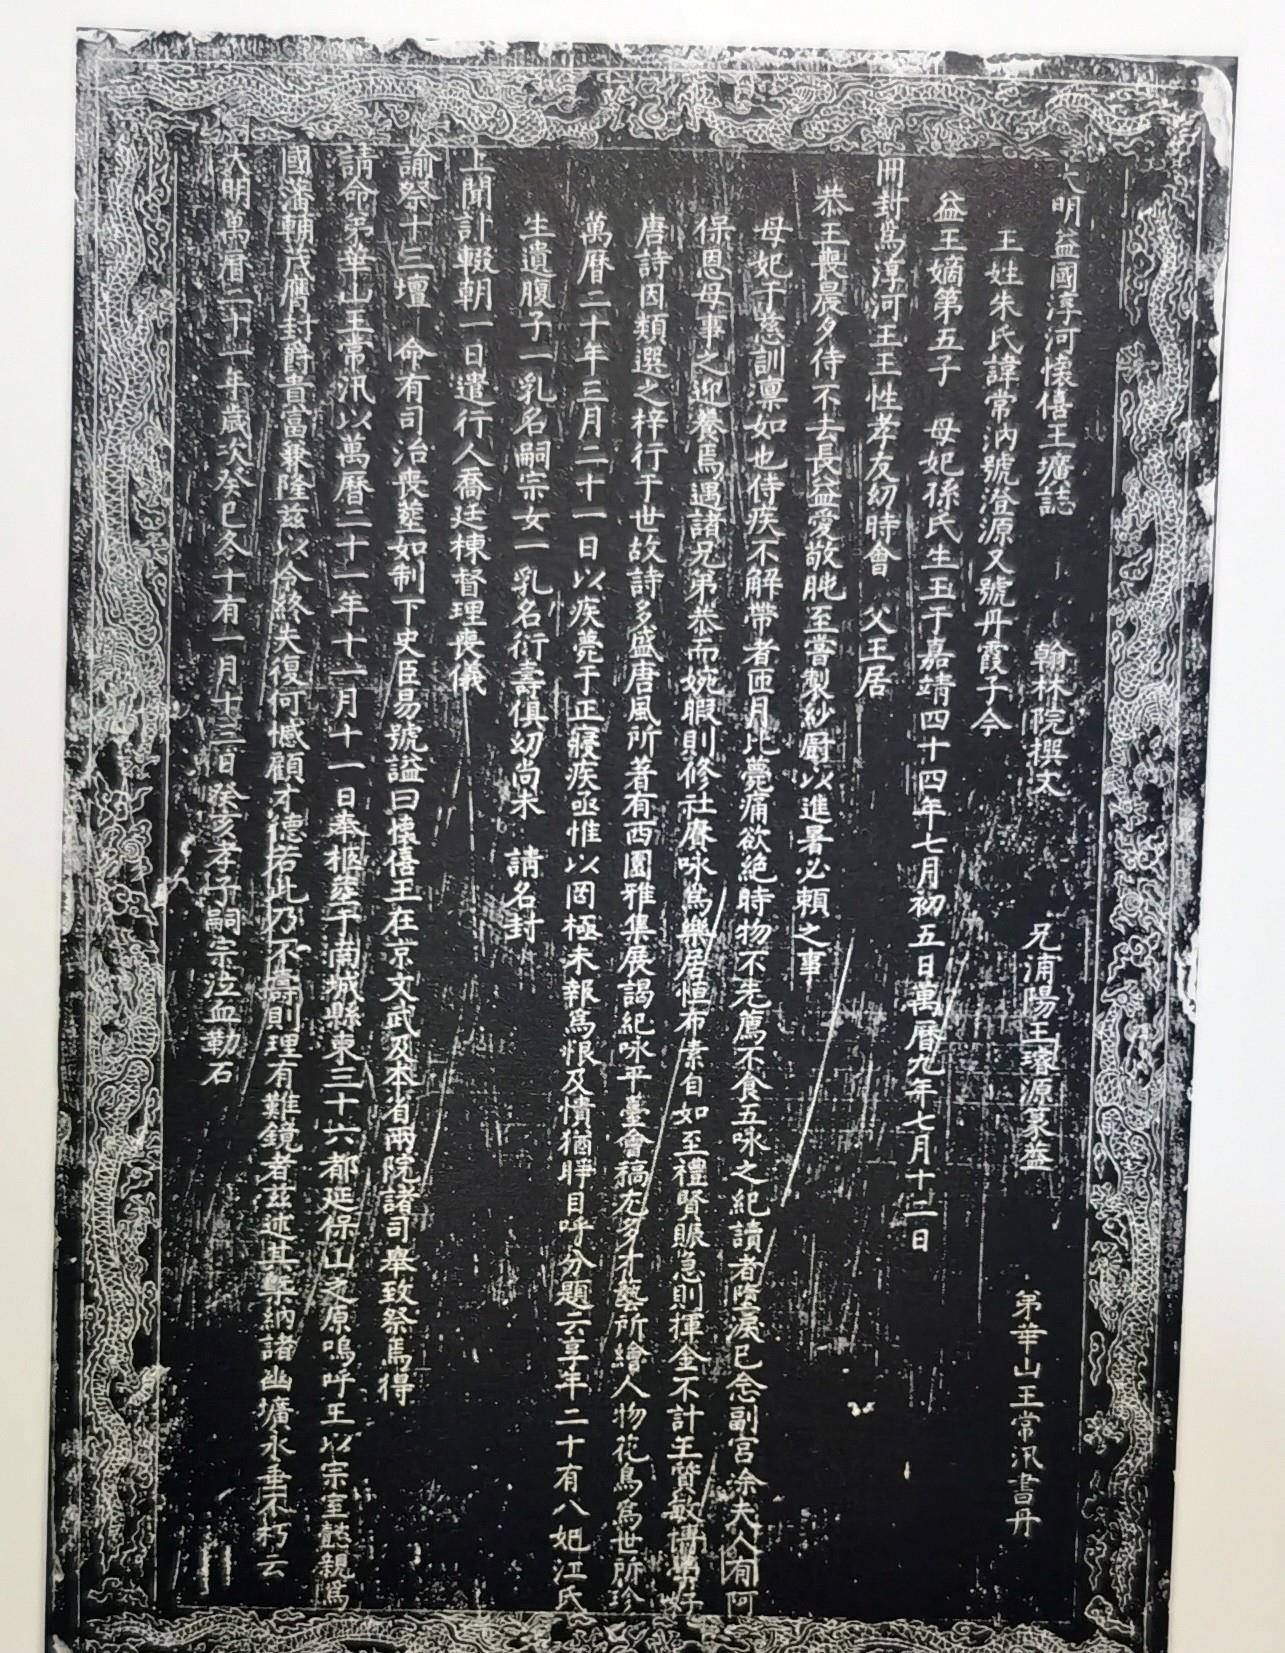 大明益國淳河懷僖王壙誌 翰林院撰文 兄浦陽王璿源篆蓋 弟華山王常汛書丹
王姓朱氏諱常汭號澄源又號丹霞子今
益王嫡第五子 母妃孫氏生王于嘉靖四十四年七月初五日萬曆九年七月十二日
冊封爲淳河王王性孝友幼時會 父王居
恭王喪晨夕侍不去長益愛敬肫至嘗製紗廚以進暑必賴之事
母妃于慈訓凛如也侍疾不解帶者匝月比薨痛欲絕時物不先薦不食五咏之紀讀者隕淚已念副宮凃夫人有阿
保恩母事之迎養焉遇諸兄弟恭而婉暇則修社賡咏爲樂居恒布素自如至禮賢賑急則揮金不計王質敏博學好
唐詩因類選之梓行于世故詩多盛唐風所著有西園雅集展謁紀咏平臺會稿尤多才藝所繪人物花鳥爲世所珍
萬曆二十年三月二十一日以疾薨于正寢疾亟惟以罔極未報爲恨及憒猶睜目呼分題云享年二十有八妃江氏
生遺腹子一乳名嗣宗女一乳名衍壽俱幼尚未 請名封
上聞訃輟朝一日遣行人喬廷棟督理喪儀
諭祭十三壇 命有司治喪塟如制下史臣易號謚曰懷僖王在京文武及本省兩院諸司舉致祭焉得
請命弟華山王常汛以萬曆二十一年十一月十一日奉柩塟于南城縣東三十六都延保山之原嗚呼王以宗室懿親爲
國藩輔茂膺封爵貴富兼隆茲以令終夫復何憾顧才德若此乃不壽則理有難鏡者茲述其槩納諸幽壙永垂不朽云
大明萬曆二十一年歲次癸巳冬十有一月十三日癸亥孝子嗣宗泣血勒石